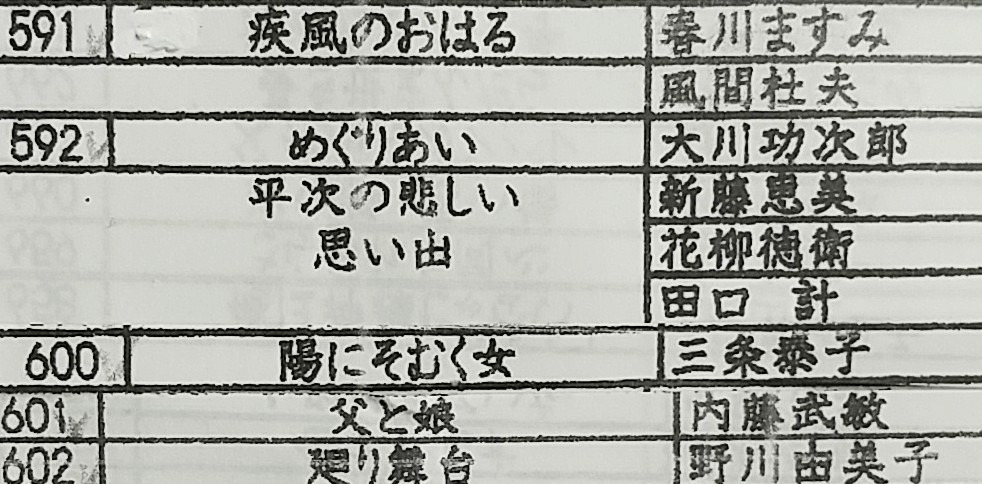 591 疾風のおはる 春川ますみ
風間杜夫
592 めぐりあい 大川功次郎
平次の悲しい 新藤恵美
思い出 花柳徳衛
田口 計
600 陽にそむく女 三条泰子
601 父と娘 内藤武敏
602 廻り舞台 野川由美子